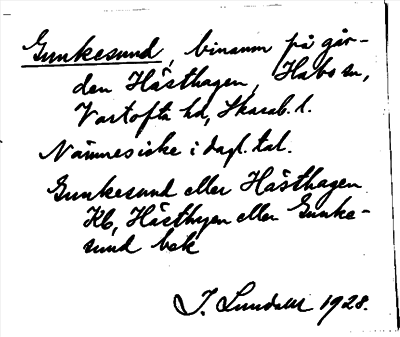 Gunkesund, binamn på går-
den Hästhagen, Habo sn,
Vartofta hd, Skarab. l.
Nämnes icke i dagl. tal.
Gunkesund eller Hästhagen
Kb, Hästhagen eller Gunke-
sund bek
J. Lundahl 1928.